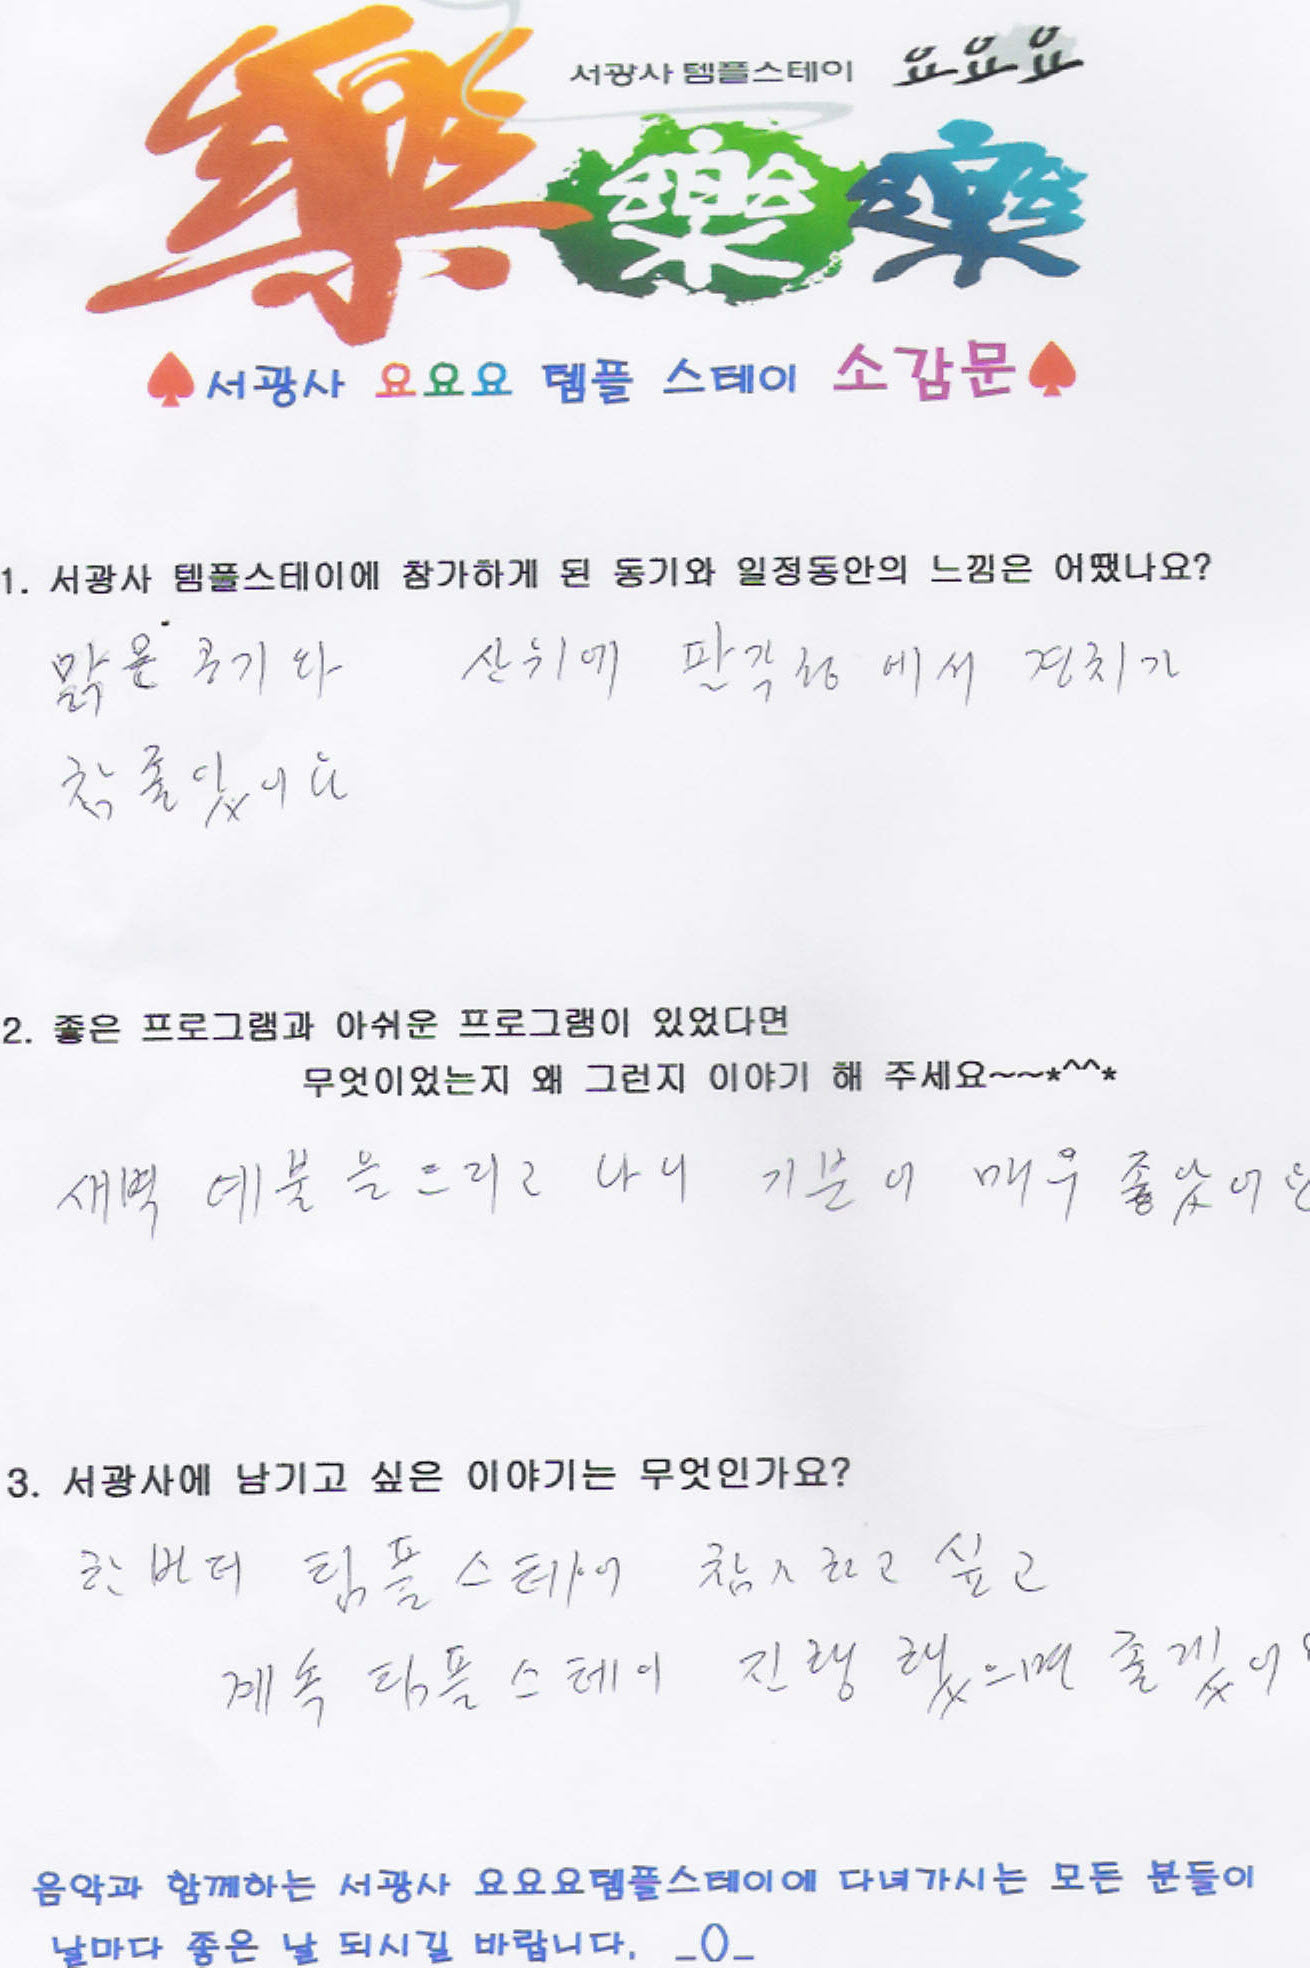 서광사 템플스테이 요요요
樂 樂 樂
서광사 요요요 템플 스테이 소감문
1. 서광사 템플스테이에 참가하게 된 동기와 일정동안의 느낌은 어땠나요?
맑은 공기와 산위에 판각장에서 경치가
참 좋았어요
2. 좋은 프로그램과 아쉬운 프로그램이 있었다면
무엇이었는지 왜 그런지 이야기 해 주세요~~*^^*
새벽 예불을 드리고 나니 기분이 매우 좋았어요
3. 서광사에 남기고 싶은 이야기는 무엇인가요?
한번더 팀플스테이 참가하고 싶고
계속 팀플스테이 진행 했으면 좋겠어요
음악과 함께하는 서광사 요요요템플스테이에 다녀가시는 모든 분들이
날마다 좋은 날 되시길 바랍니다. _()_